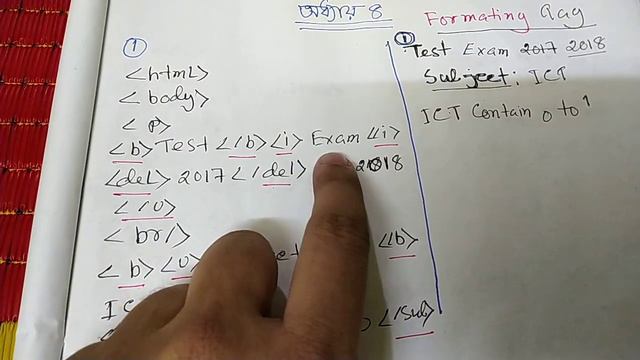 অধ্যায় ৪
Formating aag
①
<html>
<body>
<p>
<b> Test </b> <i> Exam </i>
<del> 2017 </del> 2018
</u>
<br/>
<b> <u> </b>
</sub>
①
Test Exam 2017 2018
Subject: ICT
ICT Contain 0 to 1